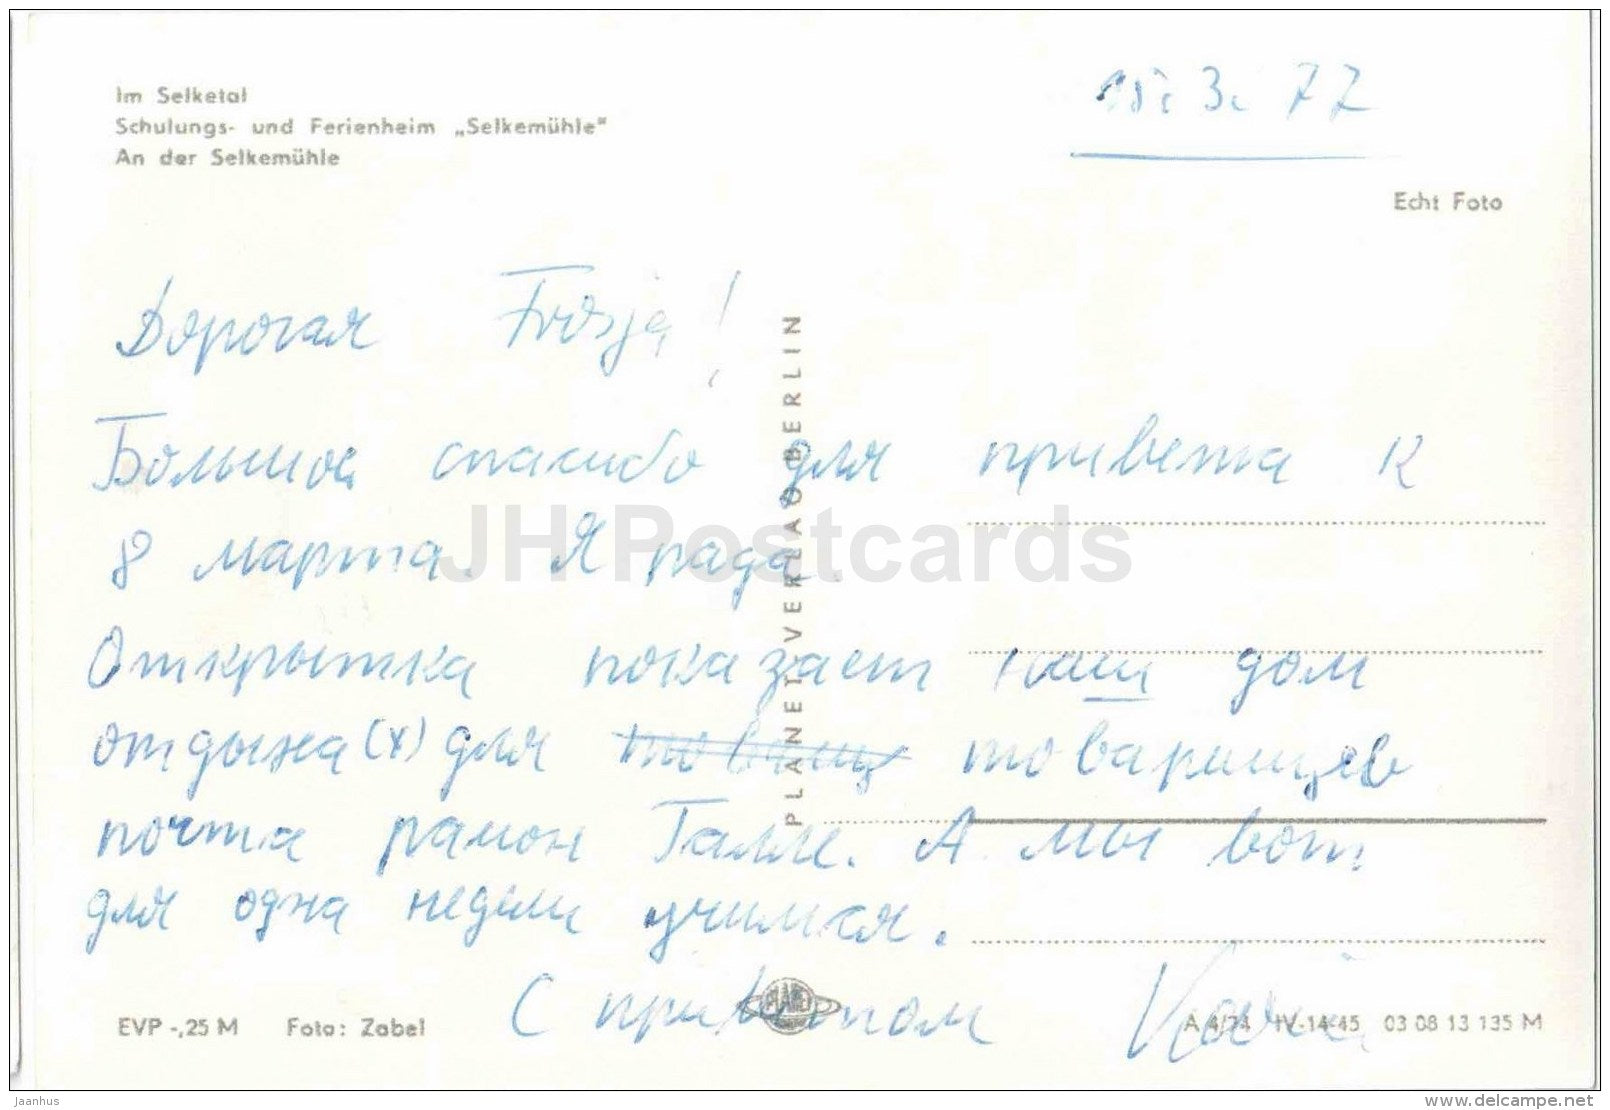 Im Selketal
Schulungs- und Ferienheim „Selkemühle"
An der Selkemühle
15. 3. 77
Echt Foto
Дорогая Frosja!
Большой спасибо для привета к
8 марта. Я рада.
Открытка показает наш дом
отдыха (х) для товарищев
почта район Галле. А мы вот
для одна недели учимся.
С приветом Karin
PLANET-VERLAG BERLIN
PLANET
EVP -,25 M Foto: Zabel
A 4/74 IV-14-45 03 08 13 135 M
JH Postcards
Jaanhus
www.delcampe.net